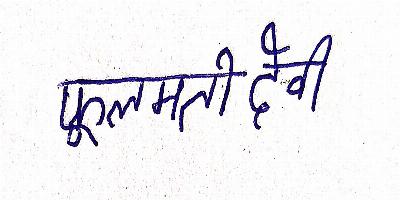 फूलमती देवी